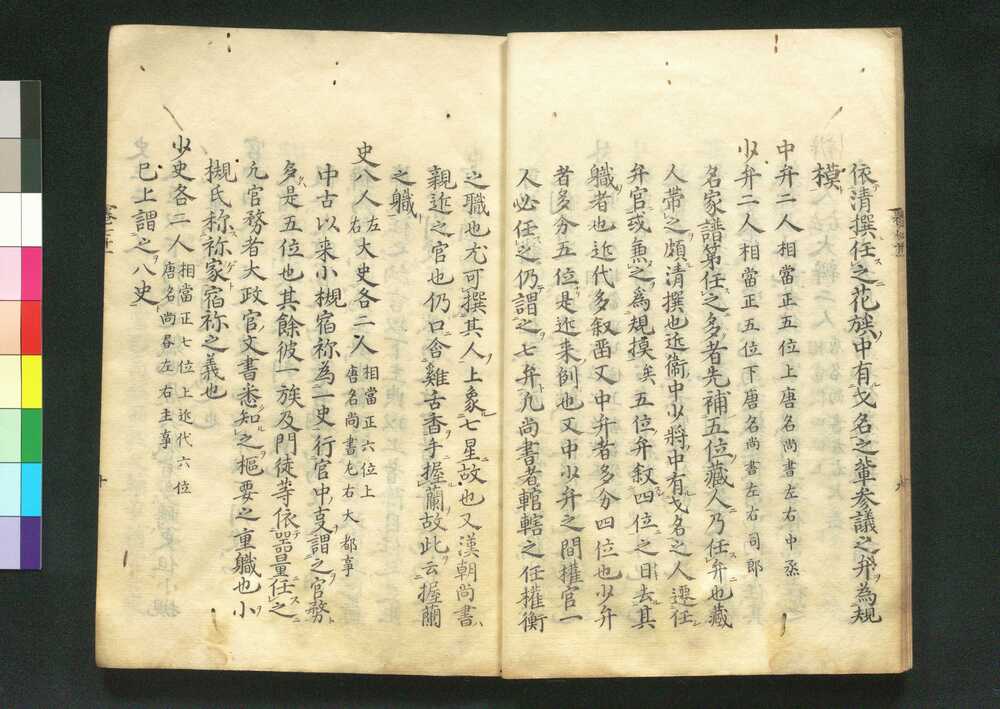 依清撰任之花族中有才名之輩参議之弁為規
摸
中弁二人相當正五位上唐名尚書左右中烝
少弁二人相當正五位下唐名尚書左右司郎
名家譜第任之多者先補五位蔵人乃任弁也蔵
人帶之頗清撰也近衛中少將中有才名之人遷任
弁官或兼之為規摸矣五位弁叙四位之日去其
職者也近代多叙畄又中弁者多分四位也少弁
者多分五位是近来例也又中少弁之間權官一
人必任之仍謂之七弁凡尚書者轄轄之任權衡
之職也尤可撰其人上象七星故也又漢朝尚書
親近之官也仍口含雞舌香手握蘭故此云握蘭
之職
史八人左右大史各二人相當正六位上唐名尚書左右大都事
中古以来小槻宿祢為二史行官中㕝謂之官務
多是五位也其餘彼一族及門徒等依器量任之
凢官務者大政官文書悉知之樞要之重職也小
槻氏称祢家宿祢之義也
少史各二人相當正七位上近代六位唐名尚各左右主事
已上謂之八史